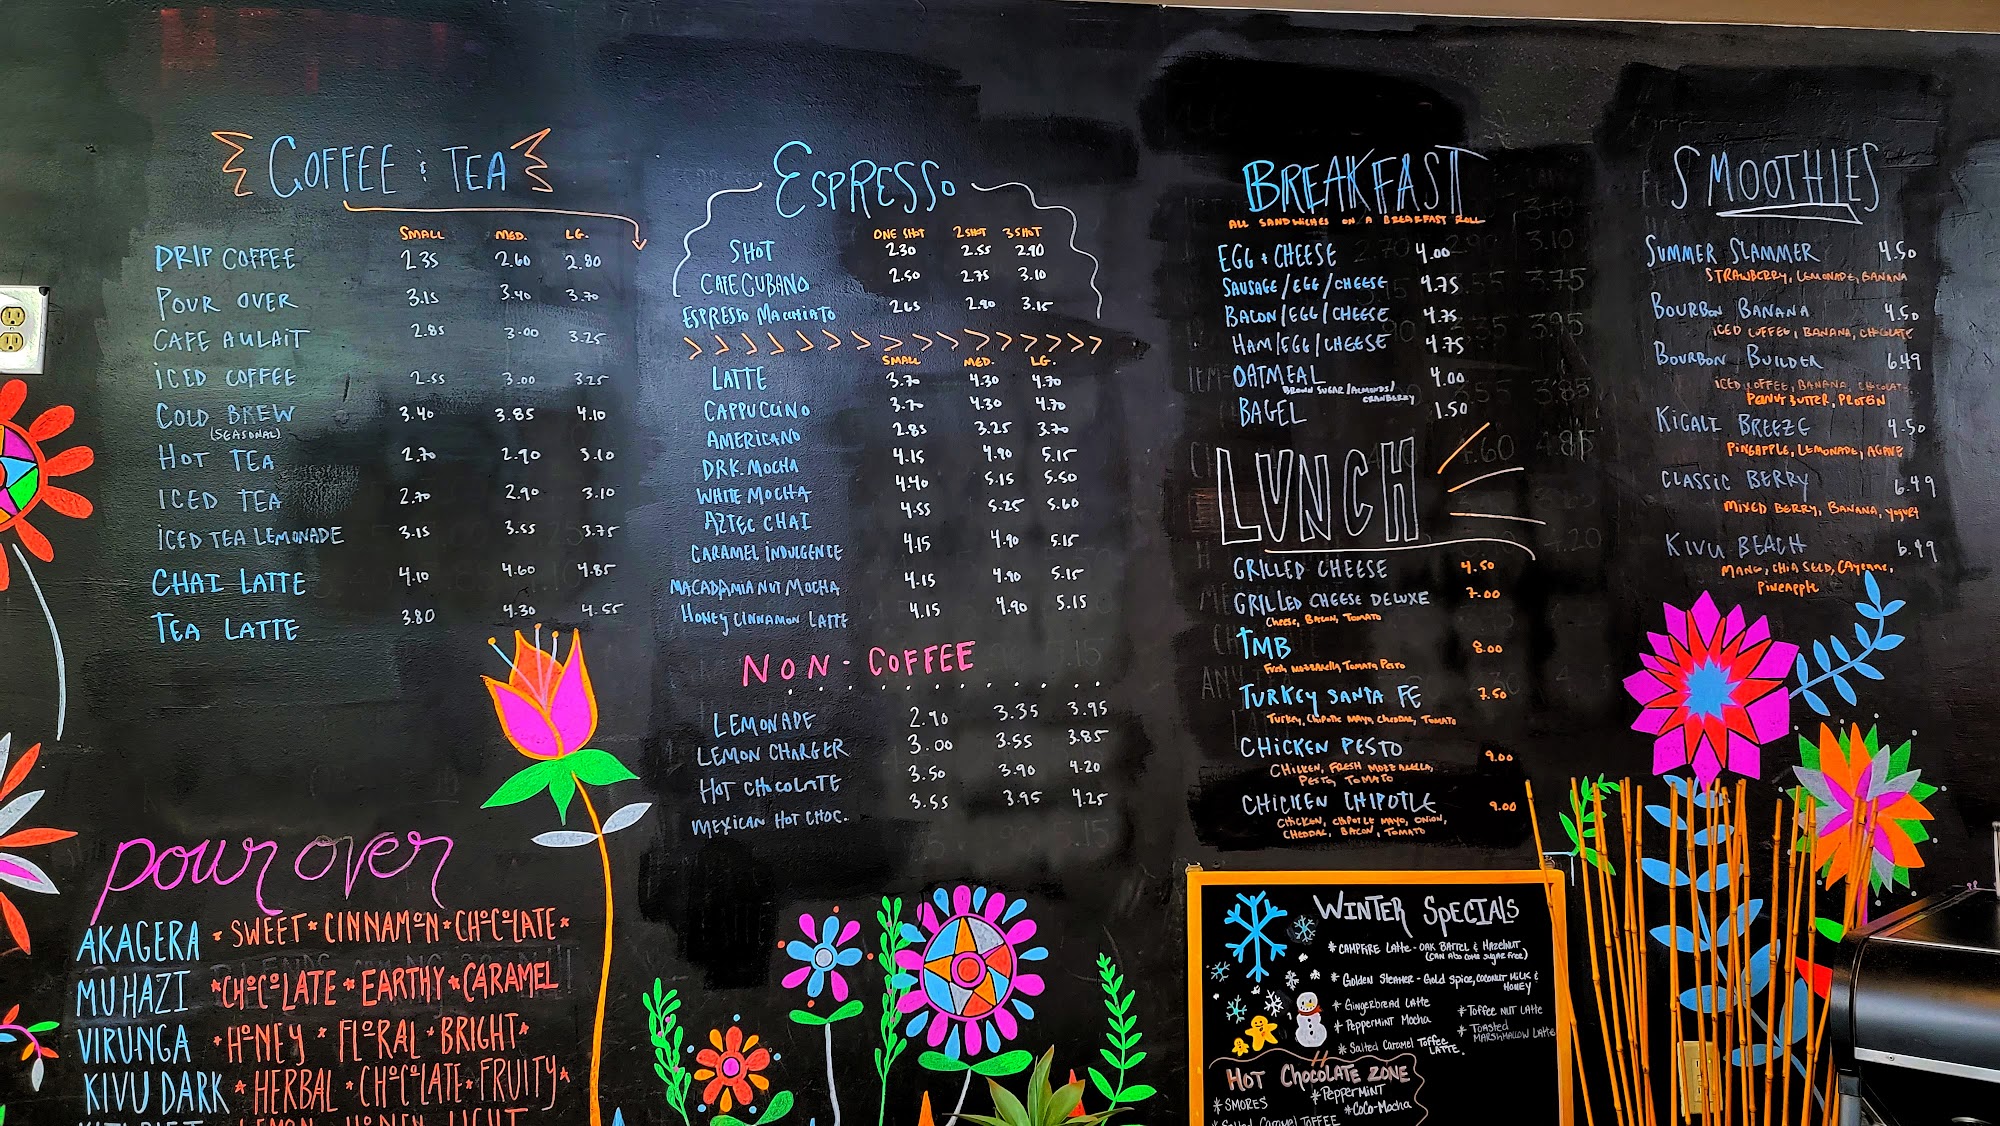 COFFEE & TEA
SMALL MED. LG.
DRIP COFFEE 2.35 2.60 2.80
POUR OVER 3.15 3.40 3.70
CAFE AULAIT 2.85 3.00 3.25
ICED COFFEE 2.55 3.00 3.25
COLD BREW 3.40 3.85 4.10
(SEASONAL)
HOT TEA 2.70 2.90 3.10
ICED TEA 2.70 2.90 3.10
ICED TEA LEMONADE 3.15 3.55 3.75
CHAI LATTE 4.10 4.60 4.85
TEA LATTE 3.80 4.30 4.55
pour over
AKAGERA * SWEET * CINNAMON * CHOCOLATE *
MUHAZI * CHOCOLATE * EARTHY * CARAMEL
VIRUNGA * HONEY * FLORAL * BRIGHT *
KIVU DARK * HERBAL * CHOCOLATE * FRUITY *
ESPRESSO
ONE SHOT 2 SHOT 3 SHOT
SHOT 2.30 2.55 2.90
CAFE CUBANO 2.50 2.75 3.10
ESPRESSO MACCHIATO 2.65 2.90 3.15
SMALL MED. LG.
LATTE 3.70 4.30 4.70
CAPPUCCINO 3.70 4.30 4.70
AMERICANO 2.85 3.25 3.70
DRK. MOCHA 4.15 4.90 5.15
WHITE MOCHA 4.40 5.15 5.50
AZTEC CHAI 4.55 5.25 5.60
CARAMEL INDULGENCE 4.15 4.90 5.15
MACADAMIA NUT MOCHA 4.15 4.90 5.15
HONEY CINNAMON LATTE 4.15 4.90 5.15
NON-COFFEE
LEMONADE 2.90 3.35 3.95
LEMON CHARGER 3.00 3.55 3.85
HOT CHOCOLATE 3.50 3.90 4.20
MEXICAN HOT CHOC. 3.55 3.95 4.25
BREAKFAST
ALL SANDWICHES ON A BREAKFAST ROLL
EGG + CHEESE 4.00
SAUSAGE/EGG/CHEESE 4.75
BACON/EGG/CHEESE 4.75
HAM/EGG/CHEESE 4.75
OATMEAL 4.00
BROWN SUGAR/ALMONDS/
CRANBERRY
BAGEL 1.50
LUNCH
GRILLED CHEESE 4.50
GRILLED CHEESE DELUXE 7.00
CHEESE, BACON, TOMATO
TMB 8.00
FRESH MOZZARELLA TOMATO PESTO
TURKEY SANTA FE 7.50
TURKEY, CHIPOTLE MAYO, CHEDDAR, TOMATO
CHICKEN PESTO 9.00
CHICKEN, FRESH MOZZARELLA,
PESTO, TOMATO
CHICKEN CHIPOTLE 9.00
CHICKEN, CHIPOTLE MAYO, ONION,
CHEDDAR, BACON, TOMATO
SMOOTHIES
SUMMER SLAMMER 4.50
STRAWBERRY, LEMONADE, BANANA
BOURBON BANANA 4.50
ICED COFFEE, BANANA, CHOCLATE
BOURBON BUILDER 6.49
ICED COFFEE, BANANA, CHOCOLAT
PEANUT BUTTER, PROTEIN
KIGALI BREEZE 4.50
PINEAPPLE, LEMONADE, AGAVE
CLASSIC BERRY 6.49
MIXED BERRY, BANANA, YOGURT
KIVU BEACH 6.49
MANGO, CHIA SEED, CAYENNE,
PINEAPPLE
WINTER SPECIALS
* CAMPFIRE LATTE - OAK BARREL & HAZELNUT
(CAN ALSO COME SUGAR FREE)
* GOLDEN STEAMER - GOLD SPICE, COCONUT MILK &
HONEY
* GINGERBREAD LATTE
* TOFFEE NUT LATTE
* PEPPERMINT MOCHA
* TOASTED
MARSHMALLOW LATTE
* SALTED CARAMEL TOFFEE
LATTE.
HOT CHOCOLATE ZONE
* SMORES
* PEPPERMINT
* COCO-MOCHA
* SALTED CARAMEL TOFFEE